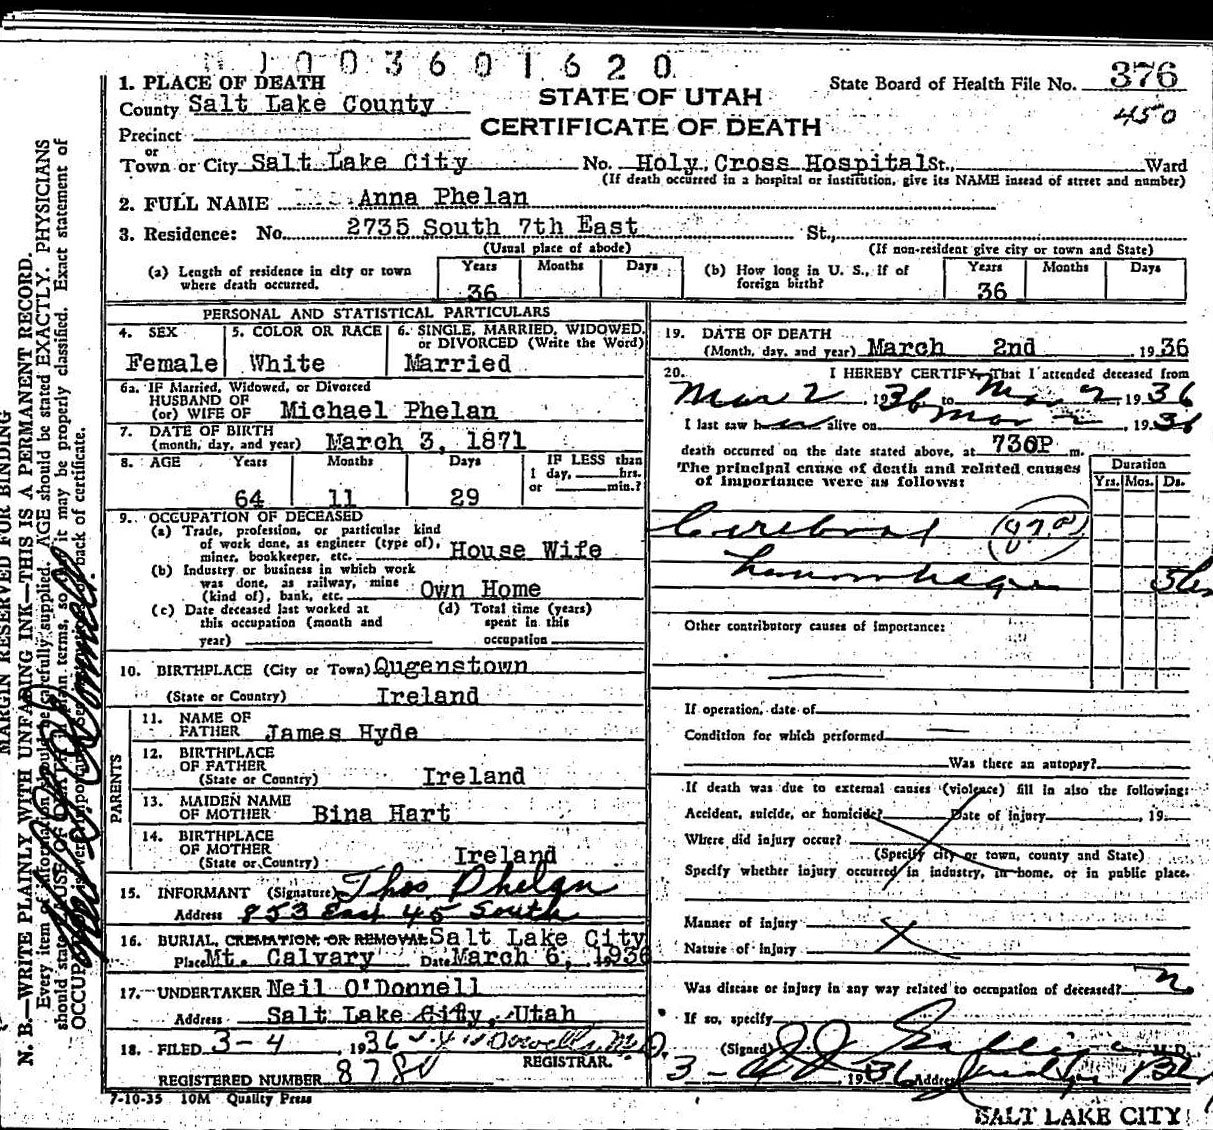 1003601620
1. PLACE OF DEATH
County Salt Lake County
STATE OF UTAH
CERTIFICATE OF DEATH
State Board of Health File No. 376
450
Precinct
or
Town or City Salt Lake City No. Holy Cross Hospital St., Ward
(If death occurred in a hospital or institution, give its NAME instead of street and number)
2. FULL NAME Anna Phelan
3. Residence: No. 2735 South 7th East St.,
(Usual place of abode) (If non-resident give city or town and State)
(a) Length of residence in city or town where death occurred. Years 36 Months Days
(b) How long in U. S., if of foreign birth? Years 36 Months Days
PERSONAL AND STATISTICAL PARTICULARS
4. SEX Female
5. COLOR OR RACE White
6. SINGLE, MARRIED, WIDOWED, or DIVORCED (Write the Word) Married
6a. IF Married, Widowed, or Divorced
HUSBAND OF
(or) WIFE OF Michael Phelan
7. DATE OF BIRTH
(month, day, and year) March 3, 1871
8. AGE Years 64 Months 11 Days 29
IF LESS than 1 day, hrs. or min.?
9. OCCUPATION OF DECEASED
(a) Trade, profession, or particular kind
of work done, as engineer (type of),
miner, bookkeeper, etc. House Wife
(b) Industry or business in which work
was done, as railway, mine
(kind of), bank, etc. Own Home
(c) Date deceased last worked at
this occupation (month and
year)
(d) Total time (years)
spent in this
occupation
10. BIRTHPLACE (City or Town) Qugenstown
(State or Country) Ireland
PARENTS
11. NAME OF
FATHER James Hyde
12. BIRTHPLACE
OF FATHER
(State or Country) Ireland
13. MAIDEN NAME
OF MOTHER Bina Hart
14. BIRTHPLACE
OF MOTHER
(State or Country) Ireland
15. INFORMANT (Signature) Thos Phelan
Address 853 East 45 South
16. BURIAL, CREMATION, OR REMOVAL Salt Lake City
Place Mt. Calvary Date March 6, 1936
17. UNDERTAKER Neil O'Donnell
Address Salt Lake City, Utah
18. FILED 3-4 1936 M.D.
REGISTRAR.
REGISTERED NUMBER 8780
7-10-35 10M Quality Press
19. DATE OF DEATH
(Month, day, and year) March 2nd 1936
20. I HEREBY CERTIFY, That I attended deceased from
Mar 2, 1936 to Mar 2, 1936
I last saw her alive on Mar 2, 1936
death occurred on the date stated above, at 730P m.
The principal cause of death and related causes
of importance were as follows:
Duration
Yrs. Mos. Ds.
Cerebral
hemorrhage
Other contributory causes of importance:
If operation, date of
Condition for which performed
Was there an autopsy?
If death was due to external causes (violence) fill in also the following:
Accident, suicide, or homicide? Date of injury , 19
Where did injury occur?
(Specify city or town, county and State)
Specify whether injury occurred in industry, in home, or in public place.
Manner of injury
Nature of injury
Was disease or injury in any way related to occupation of deceased? n
If so, specify
(Signed) M. D.
1936 Address
SALT LAKE CITY
MARGIN RESERVED FOR BINDING
N. B.—WRITE PLAINLY WITH UNFADING INK—THIS IS A PERMANENT RECORD.
Every item of information should be carefully supplied. AGE should be stated EXACTLY. PHYSICIANS
should state CAUSE OF DEATH in plain terms, so it may be properly classified. Exact statement of
OCCUPATION is very important. back of certificate.